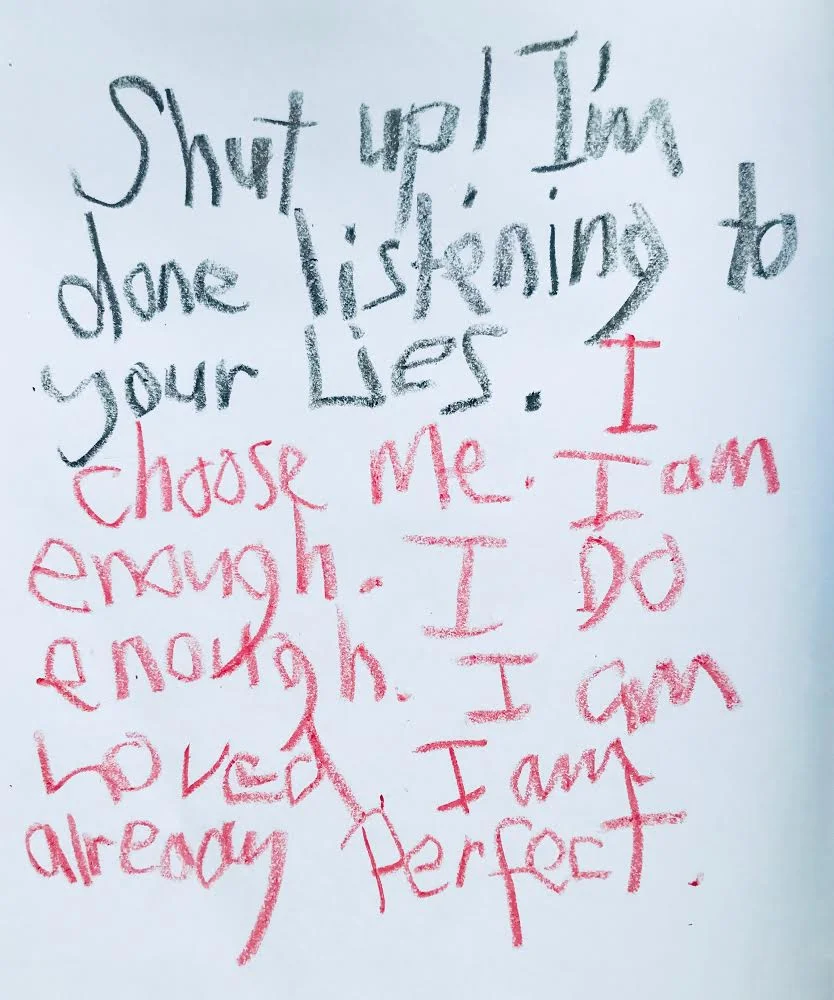 Shut up! I'm
done listening to
your Lies. I
choose Me. I am
enough. I Do
enough. I am
Loved. I am
already Perfect.